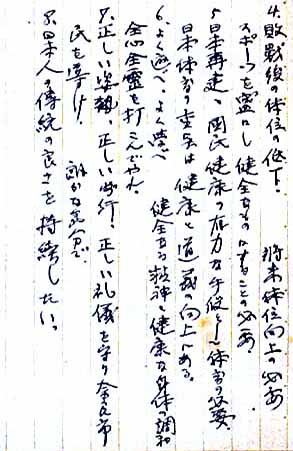 4. 敗戦後の体位の低下. 将来体位向上の必要
スポーツを盛にし健全なものにすることの必要.
5 日本再建、国民健康の有力な手段として体育の必要.
日本体育の本旨は健康と道義の向上にある.
6. よく遊べ、よく学べ 健全なる精神と健康な身体の調和
全心全霊を打こんでやれ.
7. 正しい姿勢、正しい歩行、正しい礼儀を守り
民を導け.
8. 日本人の傳統の良さを持続したい。